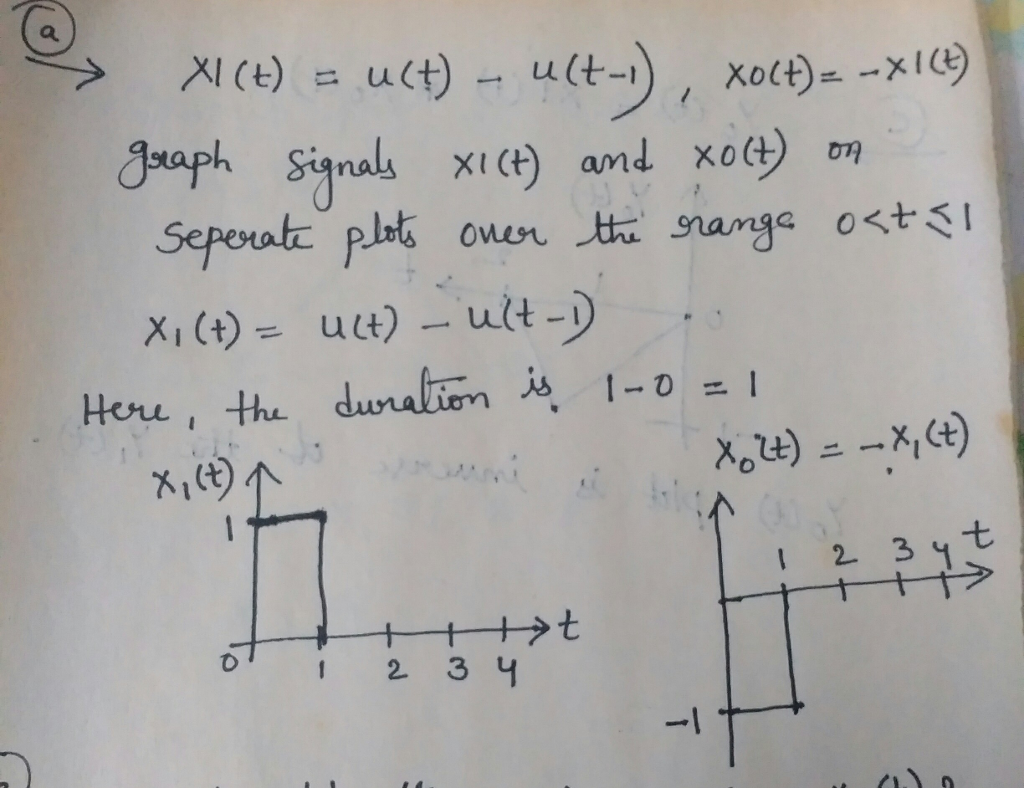 a
x1(t) = u(t) - u(t-1), x0(t) = -x1(t)
graph signals x1(t) and x0(t) on
seperate plots over the range 0<t≤1
x₁(t) = u(t) - u(t-1)
Here, the duration is 1-0 = 1
x₁(t)
1
0 1 2 3 4 t
x₀(t) = -x₁(t)
1 2 3 4 t
-1